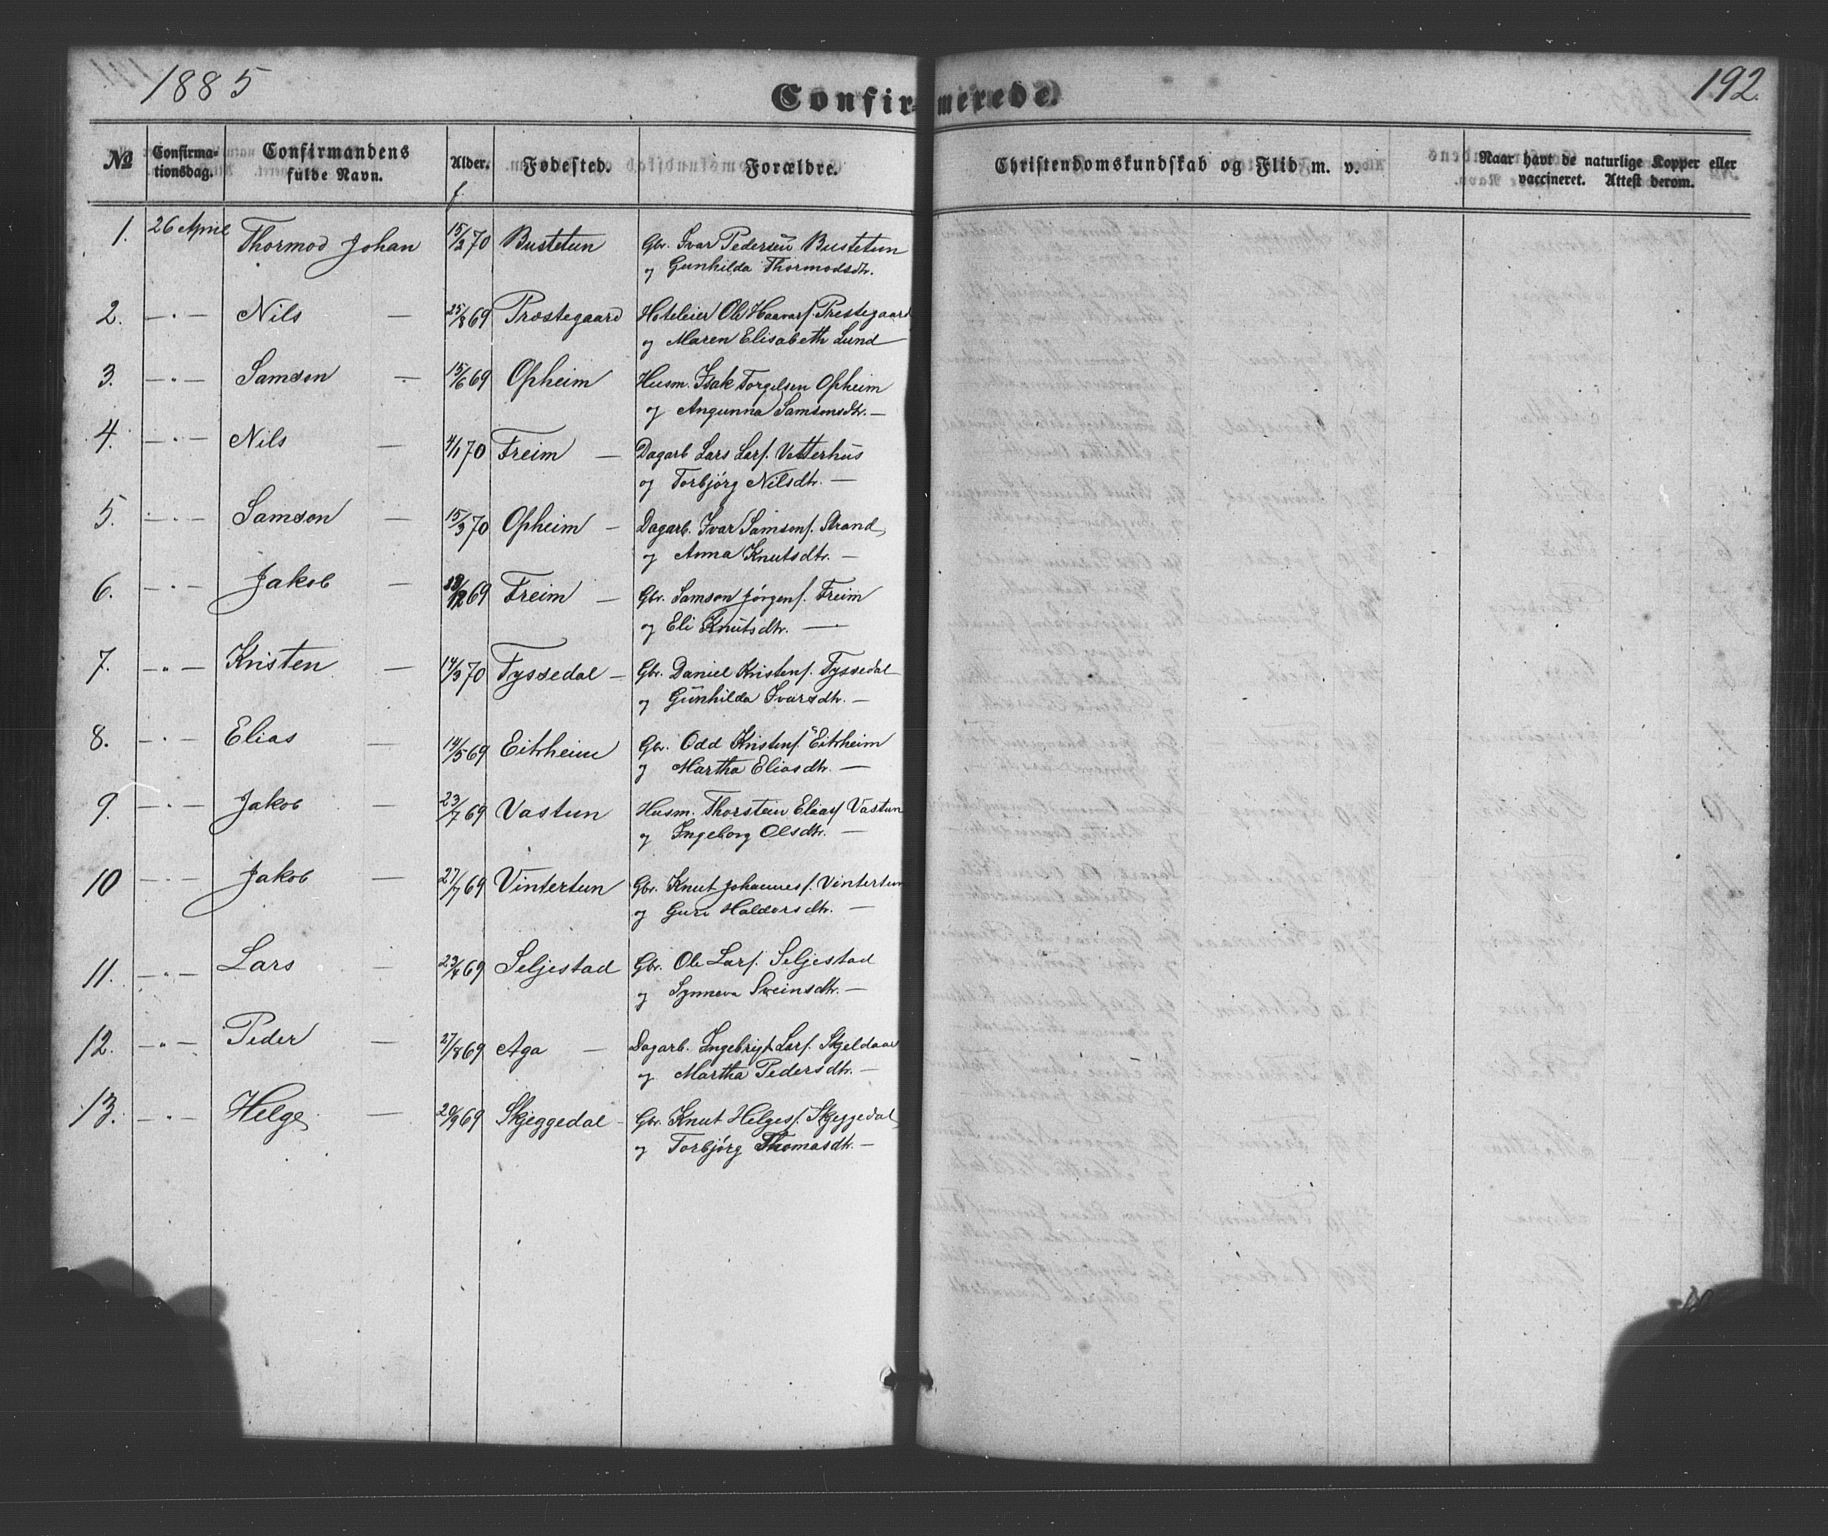 1885
Confirmerede.
192.
No
Confirma-
tionsdag.
Confirmandens
fulde Navn.
Alder.
f.
Fødested.
Forældre.
Christendomskundskab og Flid m. v.
Naar havt de naturlige Kopper eller
vaccineret. Attest derom.
1. 26 April Thormod Johan 15/2 70 Bustetun Gbr. Ivar Pedersen Bustetun
og Gunhilda Thormodsdtr.
2. — " — Nils — 25/8 69 Præstegaard Hoteleier Ole Haavars. Prestegaard
og Maren Elisabeth Lund
3. — " — Samson — 15/6 69 Opheim Husm. Isak Torgelsen Opheim
og Angunna Samsonsdtr. —
4. — " — Nils — 4/1 70 Freim — Dagarb Lars Lars. Vetterhus
og Torbjörg Nilsdtr. —
5. — " — Samson — 15/3 70 Opheim — Dagarb. Ivar Samsons. Strand
og Anna Knutsdtr. —
6. — " — Jakob — /12 69 Freim — Gbr. Samson Jörgens. Freim
og Eli Knutsdtr. —
7. — " — Kristen — 14/3 70 Tyssedal — Gbr. Daniel Kristens. Tyssedal
og Gunhilda Ivarsdtr. —
8. — " — Elias — 14/5 69 Eitrheim Gbr. Odd Kristens. Eitrheim
og Martha Eliasdtr. —
9. — " — Jakob — 23/7 69 Vastun Husm. Thorstein Elias. Vastun
og Ingeborg Olsdtr. —
10 — " — Jakob — 27/7 69 Vintertun Gbr. Knut Johannes. Vintertun
og Guri Haldorsdtr. —
11. — " — Lars — 23/ 69 Seljestad Gbr. Ole Lars. Seljestad
og Synneva Sveinsdtr. —
12. — " — Peder — 27/8 69 Aga — Dagarb. Ingebrigt Lars. Skjeldaas
og Martha Pedersdtr. —
13. — " — Helge — 20/9 69 Skjeggedal — Gbr. Knut Helges. Skjeggedal
og Torbjörg Thomasdtr. —